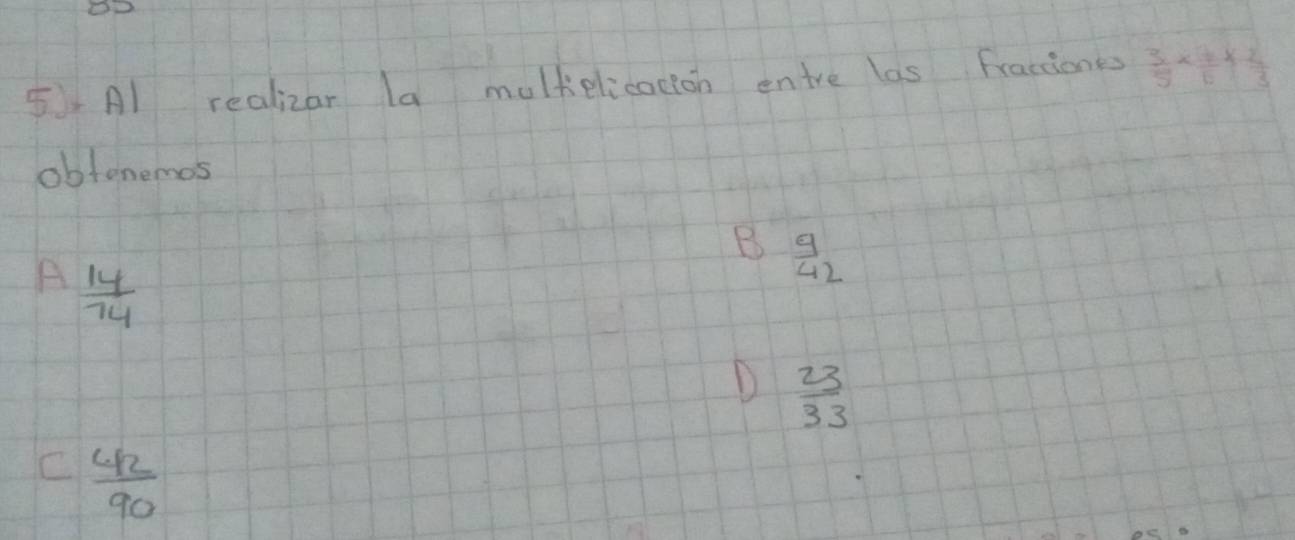 85
5). Al realizar la multiplicación entre las fracciones 3/5 × 7/6 × 2/3
obtenemos
A 14/74
B 9/42
C 42/90
D 23/33
es